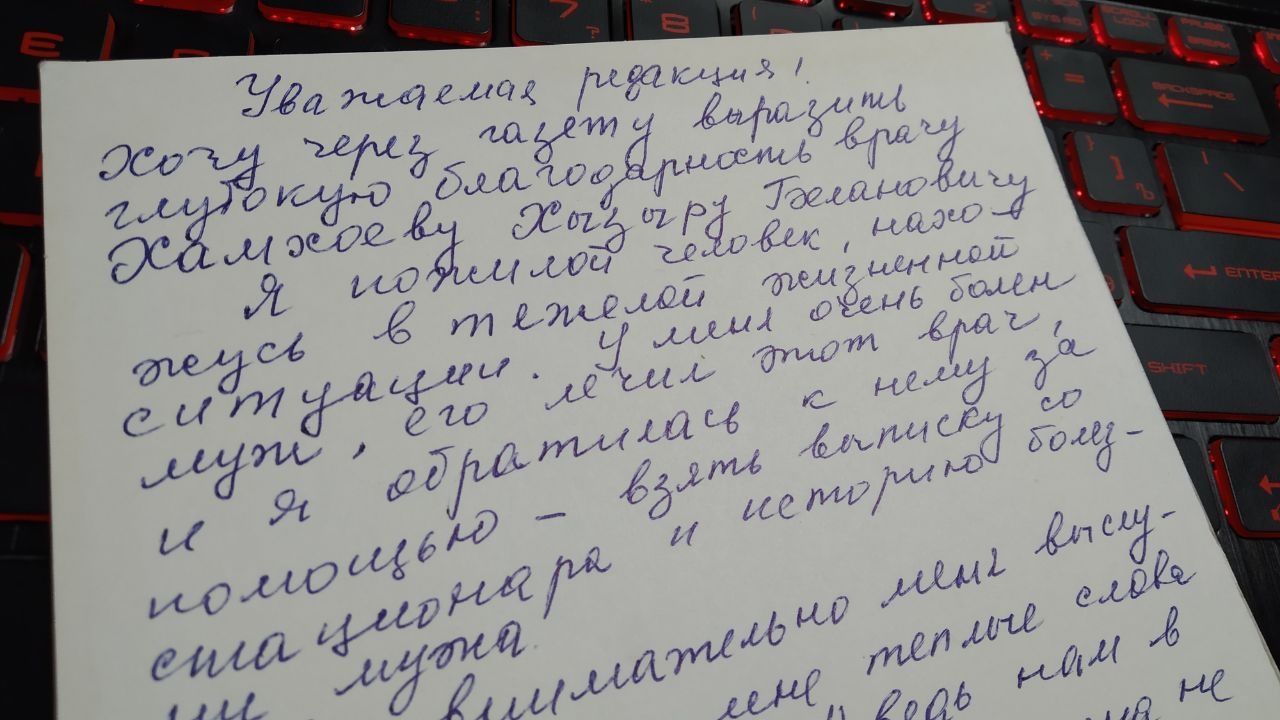 Уважаемая редакция!
Хочу через газету выразить
глубокую благодарность врачу
Хамхоеву Хызыру Белановичу
Я пожилой человек, нахо-
жусь в тяжелой жизненной
ситуации. У меня очень болен
муж, его лечил этот врач,
и я обратилась к нему за
помощью - взять выписку со
стационара и историю болез-
ни мужа.
внимательно меня выслу-
мне теплые слова
ведь нам в
не
E
7
8
SYS RQ
SCROLL LOCK
PAUSE BREAK
+ =
BACKSPACE
}
]
\
ENTER
SHIFT